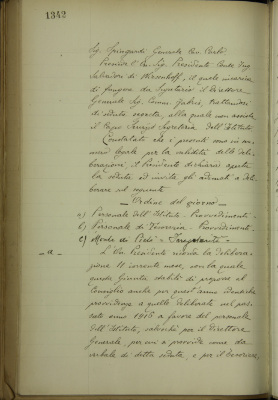 1342
Sig. Spingardi Generale Cav. Carlo.
Presiede l'On. Sig. Presidente Conte Ing.
Salvadori di Wiesenhoff, il quale incarica
di fungere da Segretario il Direttore
Generale Sig. Comm. Gabri, trattandosi
di seduta segreta, alla quale non assiste
il Capo Servizio Segreteria dell'Istituto
Constatato che i presenti sono in nu-
mero legale per la validità delle deli-
berazioni, il Presidente dichiara aperta
la seduta ed invita gli adunati a deli-
berare sul seguente
— Ordine del giorno —
a) Personale dell'Istituto - Provvedimenti -
b) Personale di Tesoreria - Provvedimenti -
c) Monte di Pietà -
- a - L'On. Presidente ricorda la delibera-
zione 11 corrente mese, con la quale
questa Giunta stabilì di proporre al
Consiglio anche per quest'anno identiche
provvidenze a quelle deliberate nel pas-
sato anno 1915 a favore del personale
dell'Istituto, salvochè per il Direttore
Generale, per cui si provvide come da
verbale di detta seduta, e per il